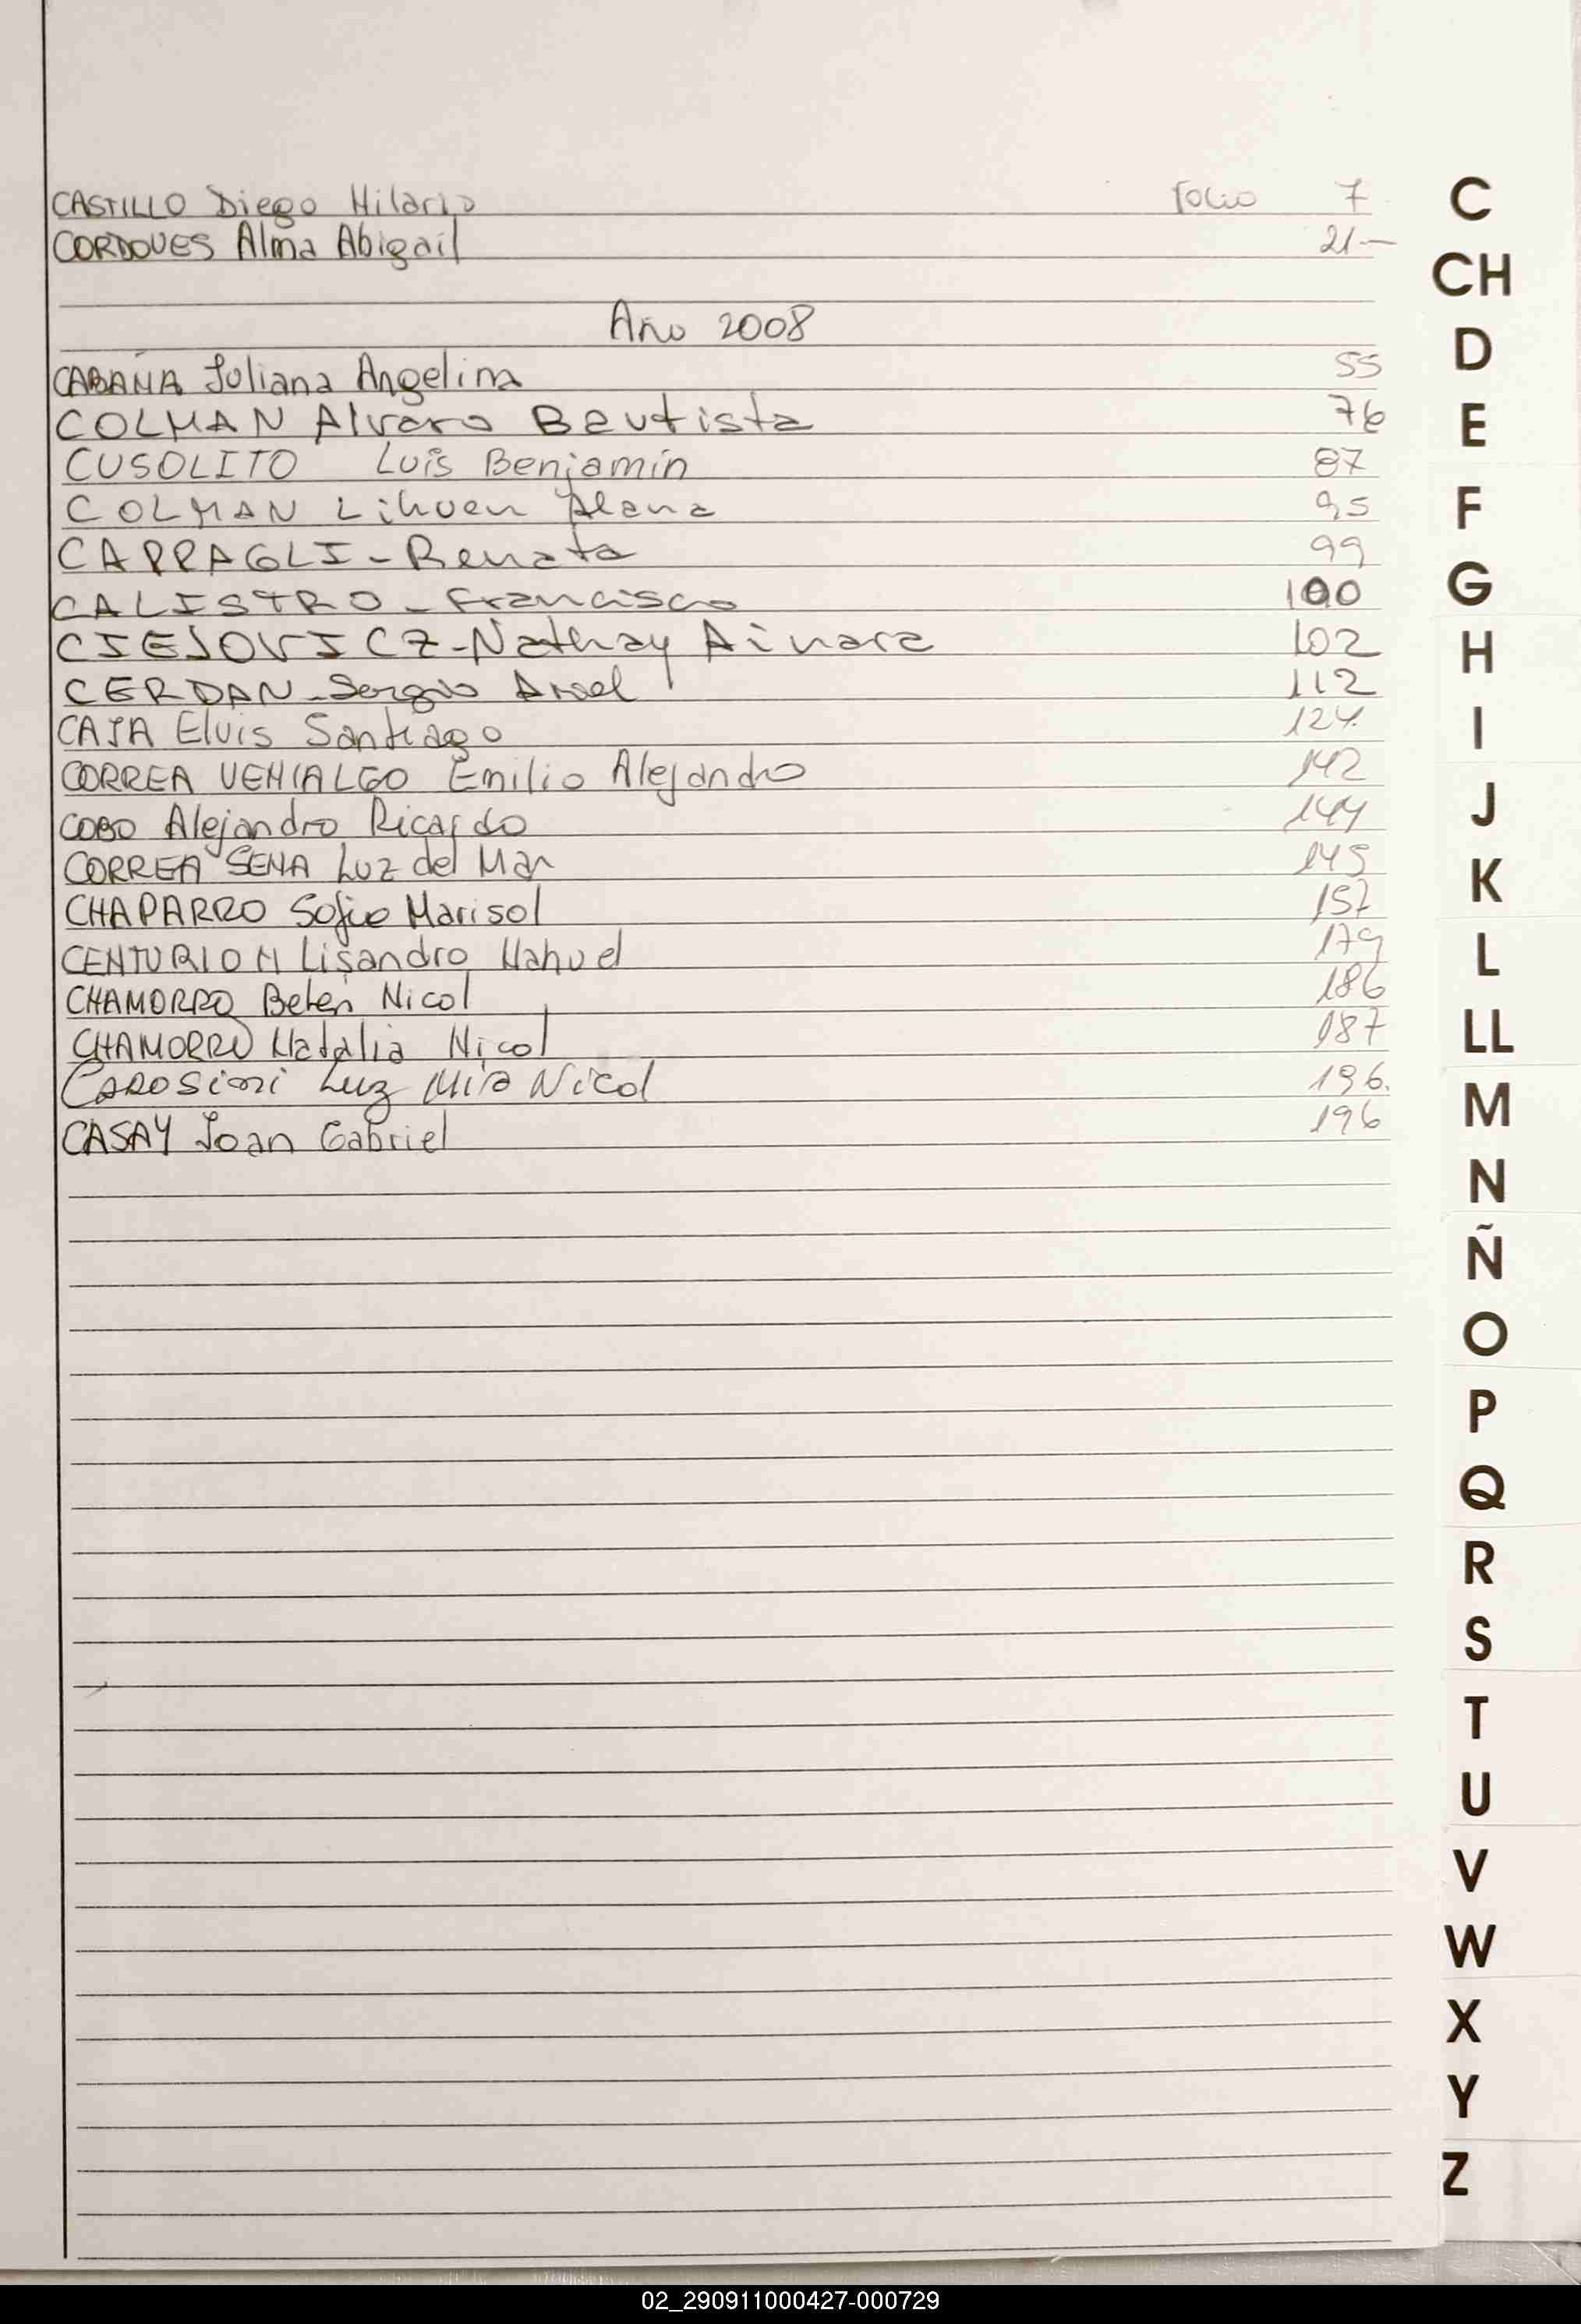 CASTILLO Diego Hilario Folio 7
CORDOVES Alma Abigail 21—
Año 2008
CABAÑA Juliana Angelina 55
COLMAN Alvaro Bautista 76
CUSOLITO Luis Benjamín 87
COLMAN Lihuen Alana 95
CAPRAGLI - Renata 99
CALISTRO - Francisco 100
CIEJOVICZ - Nathay Ainara 102
CERDAN - Sergio 112
CAJA Elvis Santiago 124.
CORREA VENIALGO Emilio Alejandro 142
COBO Alejandro Ricardo 144
CORREA SENA Luz del Mar 145
CHAPARRO Sofia Marisol 157
CENTURION Lisandro Nahuel 179
CHAMORRO Belen Nicol 186
CHAMORRO Natalia Nicol 187
CAROSINI Luz Mia Nicol 196.
CASAY Joan Gabriel 196
C
CH
D
E
F
G
H
I
J
K
L
LL
M
N
Ñ
O
P
Q
R
S
T
U
V
W
X
Y
Z
02_290911000427-000729